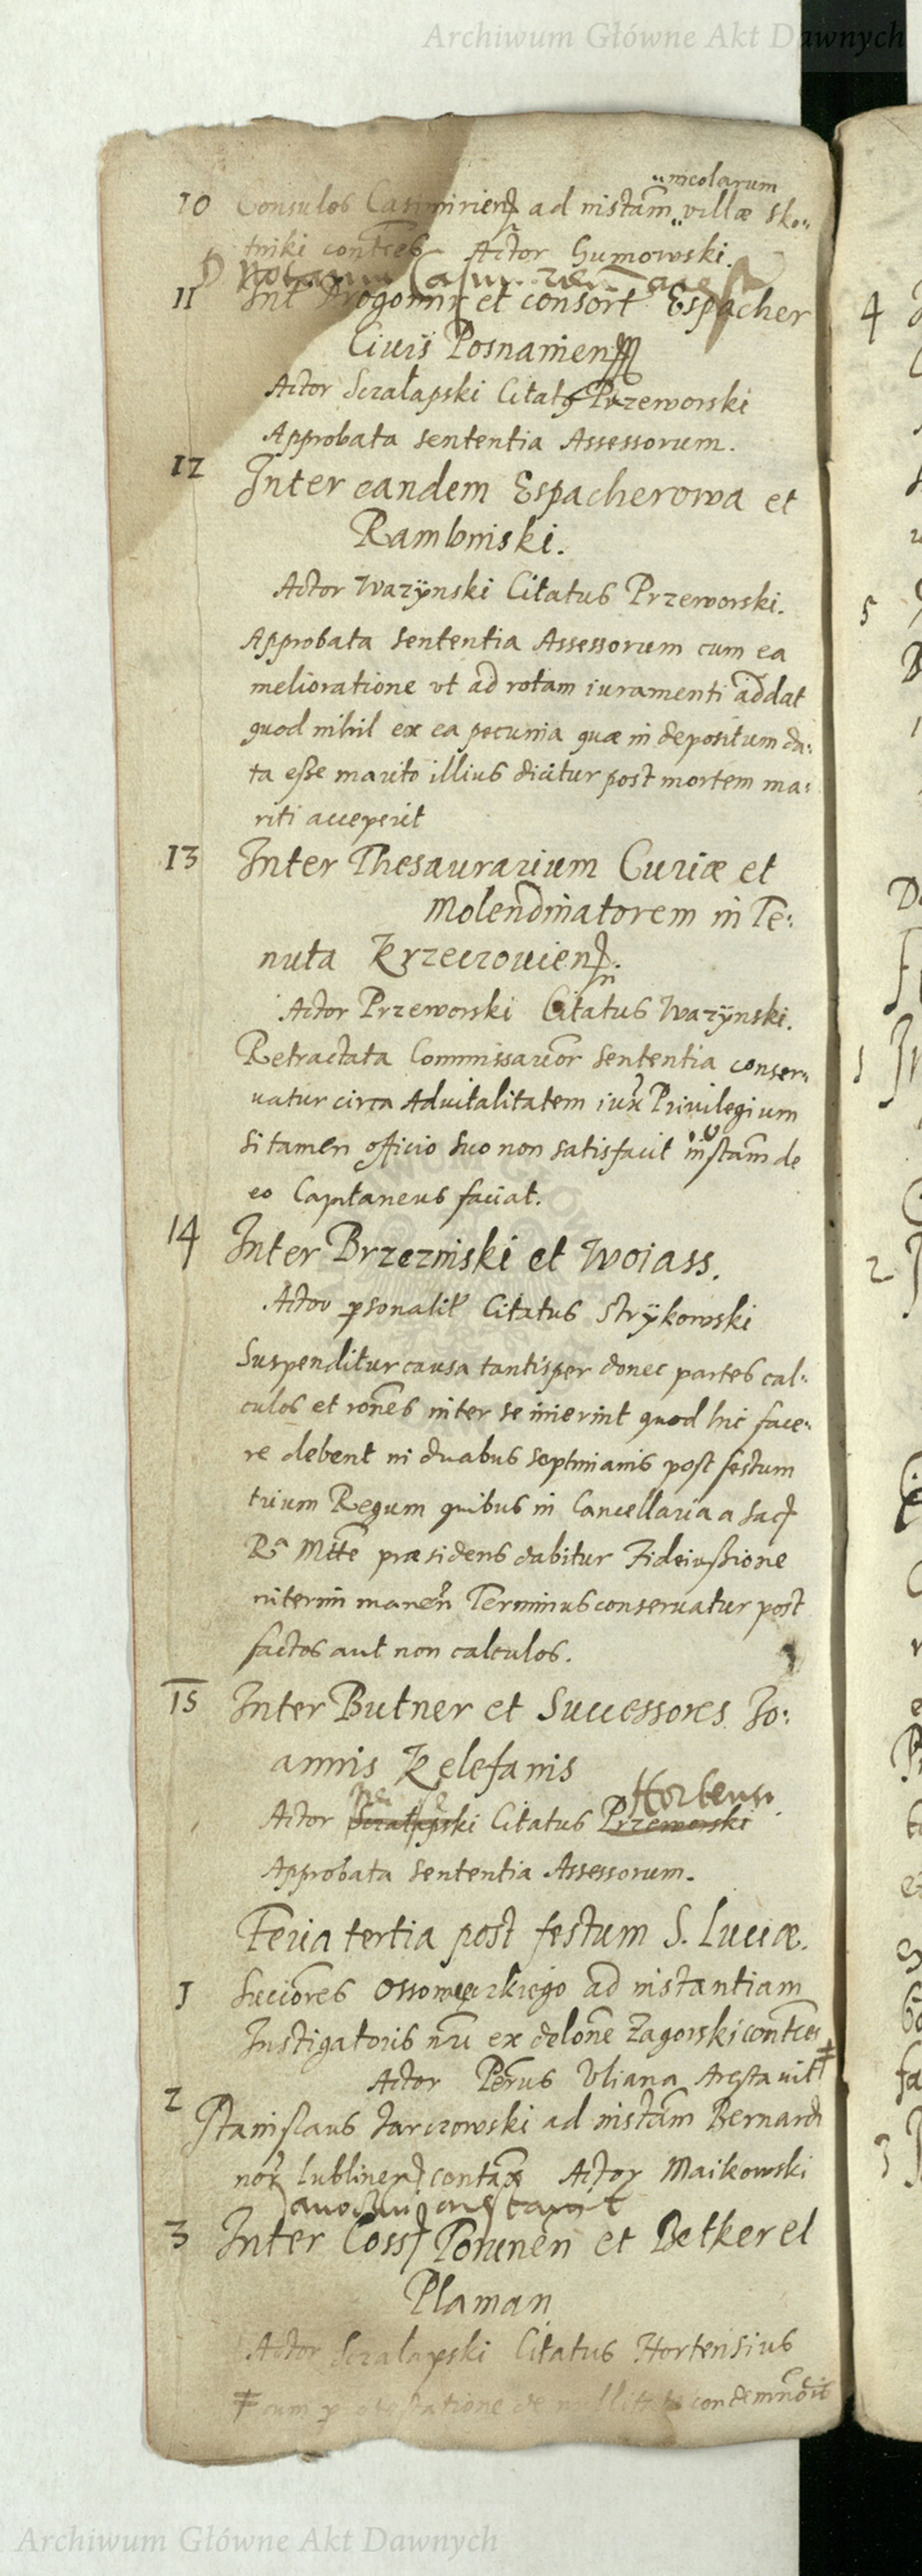 Archiwum Główne Akt Dawnych
incolarum
10 Consules Casimirien ad instam villæ Sko:
tniki contces Actor Gumowski.
11 Int Drogonin et consort Espacher
Civis Posnanien
Actor Sczalapski Citatq Przeworski
Approbata sententia Assessorum.
12 Inter eandem Espacherowa et
Rambinski.
Actor Wazÿnski Citatus Przeworski.
Approbata sententia Assessorum cum ea
melioratione vt ad rotam iuramenti addat
quod nihil ex ea pecunia quæ in depositum da:
ta esse marito illius dicitur post mortem ma:
riti acceperit
13 Inter Thesaurarium Curiæ et
Molendinatorem in Te:
nuta Krzeczovien.
Actor Przeworski Citatus Wazÿnski.
Retractata Commissarior sententia conser:
uatur circa Aduitalitatem iux Priuilegium
si tamen officio suo non satisfacit instam de
eo Capitaneus faciat.
14 Inter Brzezinski et Woiass.
Actor psonalit Citatus Strÿkowski
Suspenditur causa tantisper donec partes cal:
culos et rones inter se inierint quod hic face:
re debent in duabus septimanis post festum
trium Regum quibus in Cancellaria a Sac
Ra Mtte præsidens dabitur Fideiussione
interim manen Terminus conseruatur post
factos aut non calculos.
15 Inter Butner et Successores Jo:
annis Kelefanis
Hortensi
Actor Sczalapski Citatus Przeworski
Approbata sententia Assessorum.
Feria tertia post festum S. Luciæ.
1 Succores ad instantiam
Instigatoris nri ex delone Zagorski contces
Actor Petrus Vliana Arestauit ǂ
2 Stanislaus Jarczowski ad instam Bernardi
nor Lublinen contax Actor Maikowski
3 Inter Coss Torunen et Betker et
Plaman
Actor Sczalapski Citatus Hortensius
ǂ cum protestatione de nullitate condemnõis
4
5
1
2
3
Archiwum Główne Akt Dawnych